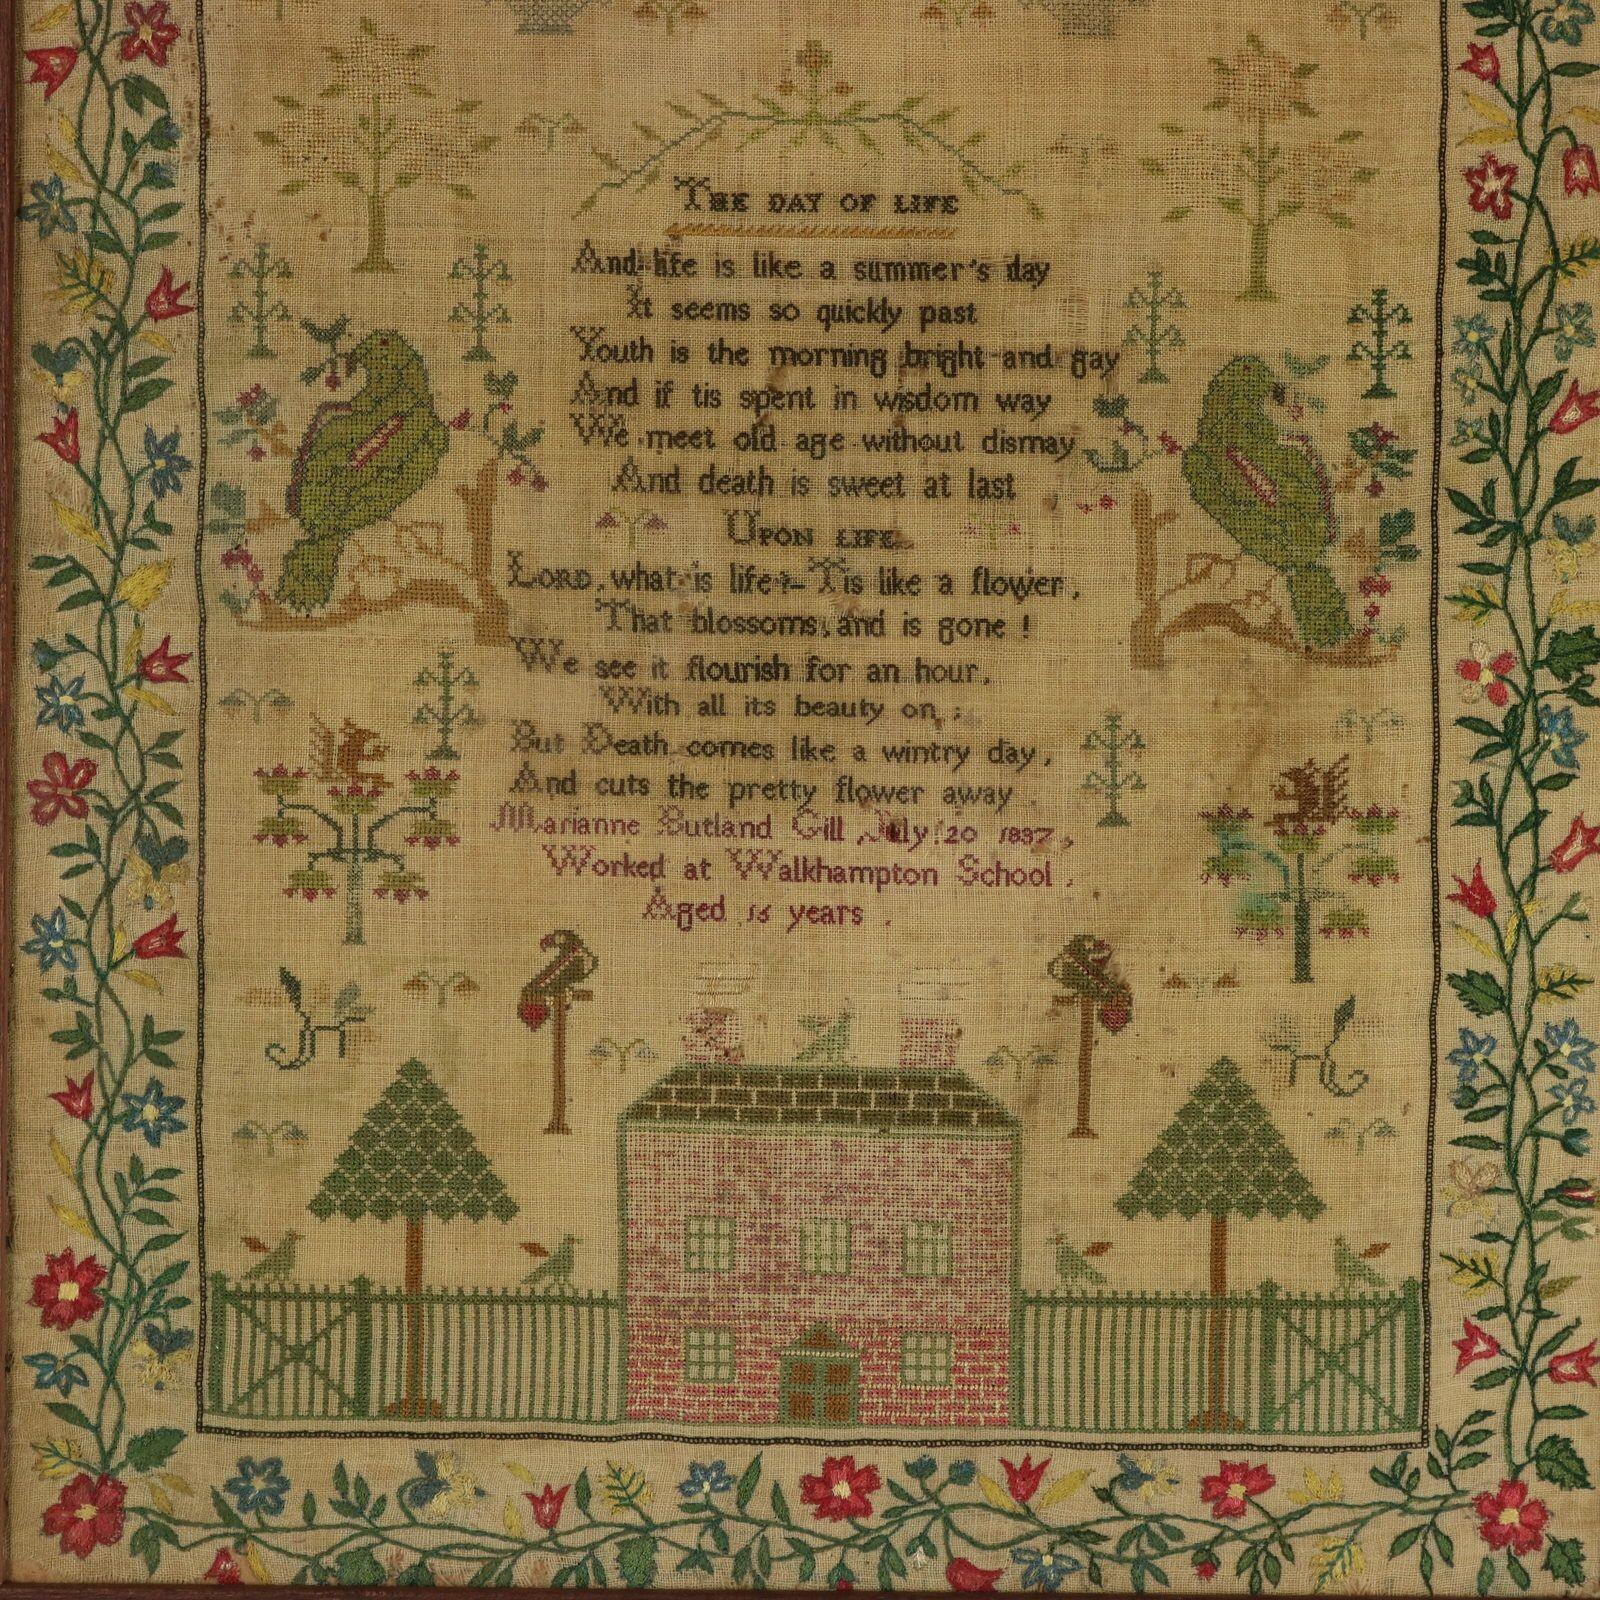 THE DAY OF LIFE
And life is like a summer's day
It seems so quickly past
Youth is the morning bright and gay
And if tis spent in wisdom way
We meet old age without dismay
And death is sweet at last
UPON LIFE
LORD, what is life?– Tis like a flower,
That blossoms, and is gone!
We see it flourish for an hour,
With all its beauty on;
But Death comes like a wintry day,
And cuts the pretty flower away.
Marianne Butland Gill July 20 1837,
Worked at Walkhampton School,
Aged years.